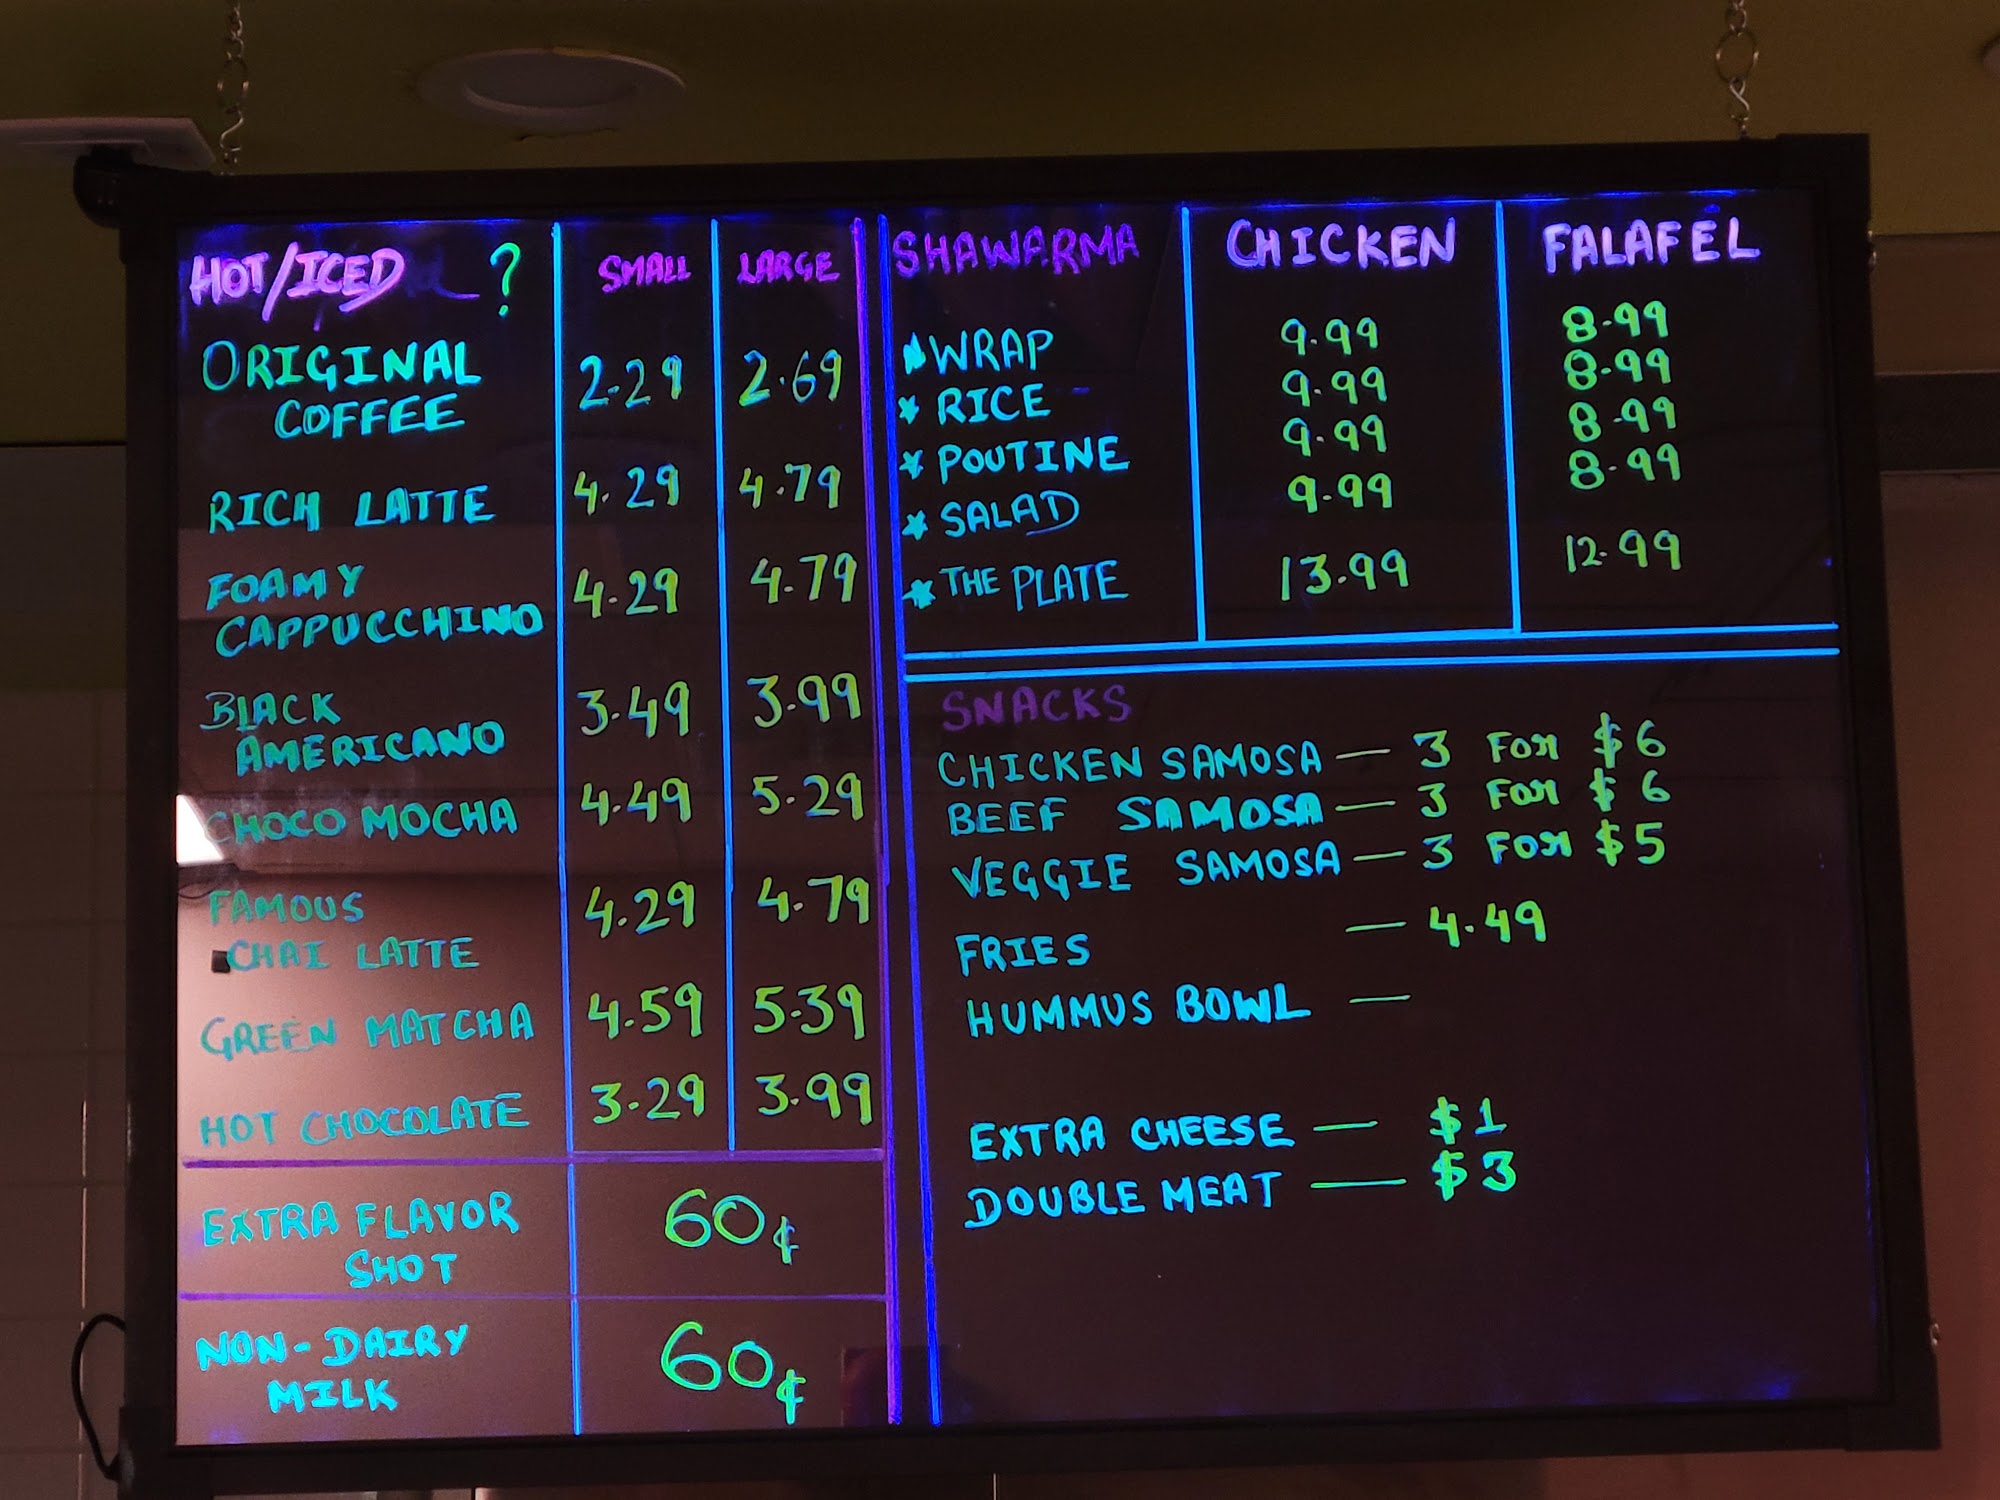 HOT/ICED ? SMALL LARGE
ORIGINAL
COFFEE 2.29 2.69
RICH LATTE 4.29 4.79
FOAMY
CAPPUCCHINO 4.29 4.79
BLACK
AMERICANO 3.49 3.99
CHOCO MOCHA 4.49 5.29
FAMOUS
CHAI LATTE 4.29 4.79
GREEN MATCHA 4.59 5.39
HOT CHOCOLATE 3.29 3.99
EXTRA FLAVOR
SHOT 60¢
NON-DAIRY
MILK 60¢
SHAWARMA CHICKEN FALAFEL
★ WRAP 9.99 8.99
★ RICE 9.99 8.99
★ POUTINE 9.99 8.99
★ SALAD 9.99 8.99
★ THE PLATE 13.99 12.99
SNACKS
CHICKEN SAMOSA — 3 FOR $6
BEEF SAMOSA — 3 FOR $6
VEGGIE SAMOSA — 3 FOR $5
FRIES — 4.49
HUMMUS BOWL —
EXTRA CHEESE — $1
DOUBLE MEAT — $3